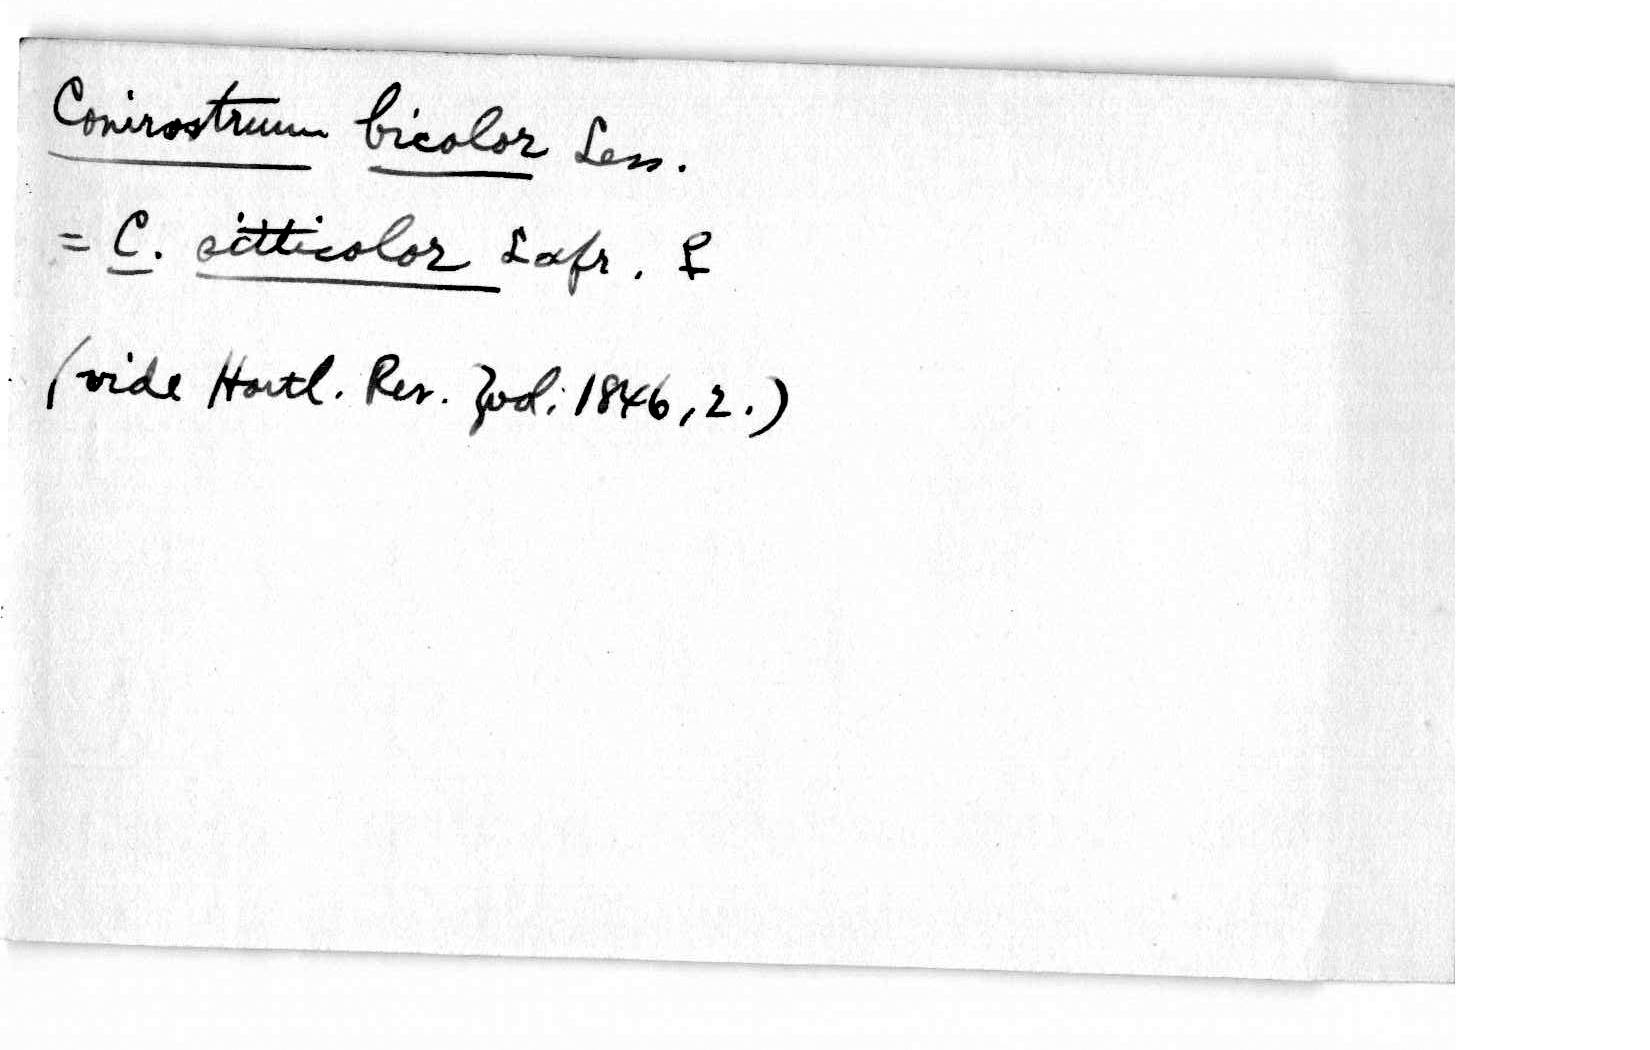 Conirostrum bicolor Less.
= C. sitticolor Lafr. ♀
(vide Hartl. Rev. Zool. 1846, 2.)